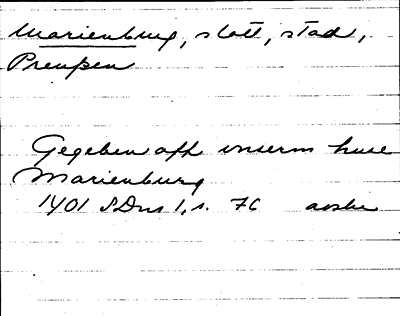 Marienburg, slott, stad,
Preußen
Gegeben off unserm huse
Marienburg
1401 SDns 1, s. 76